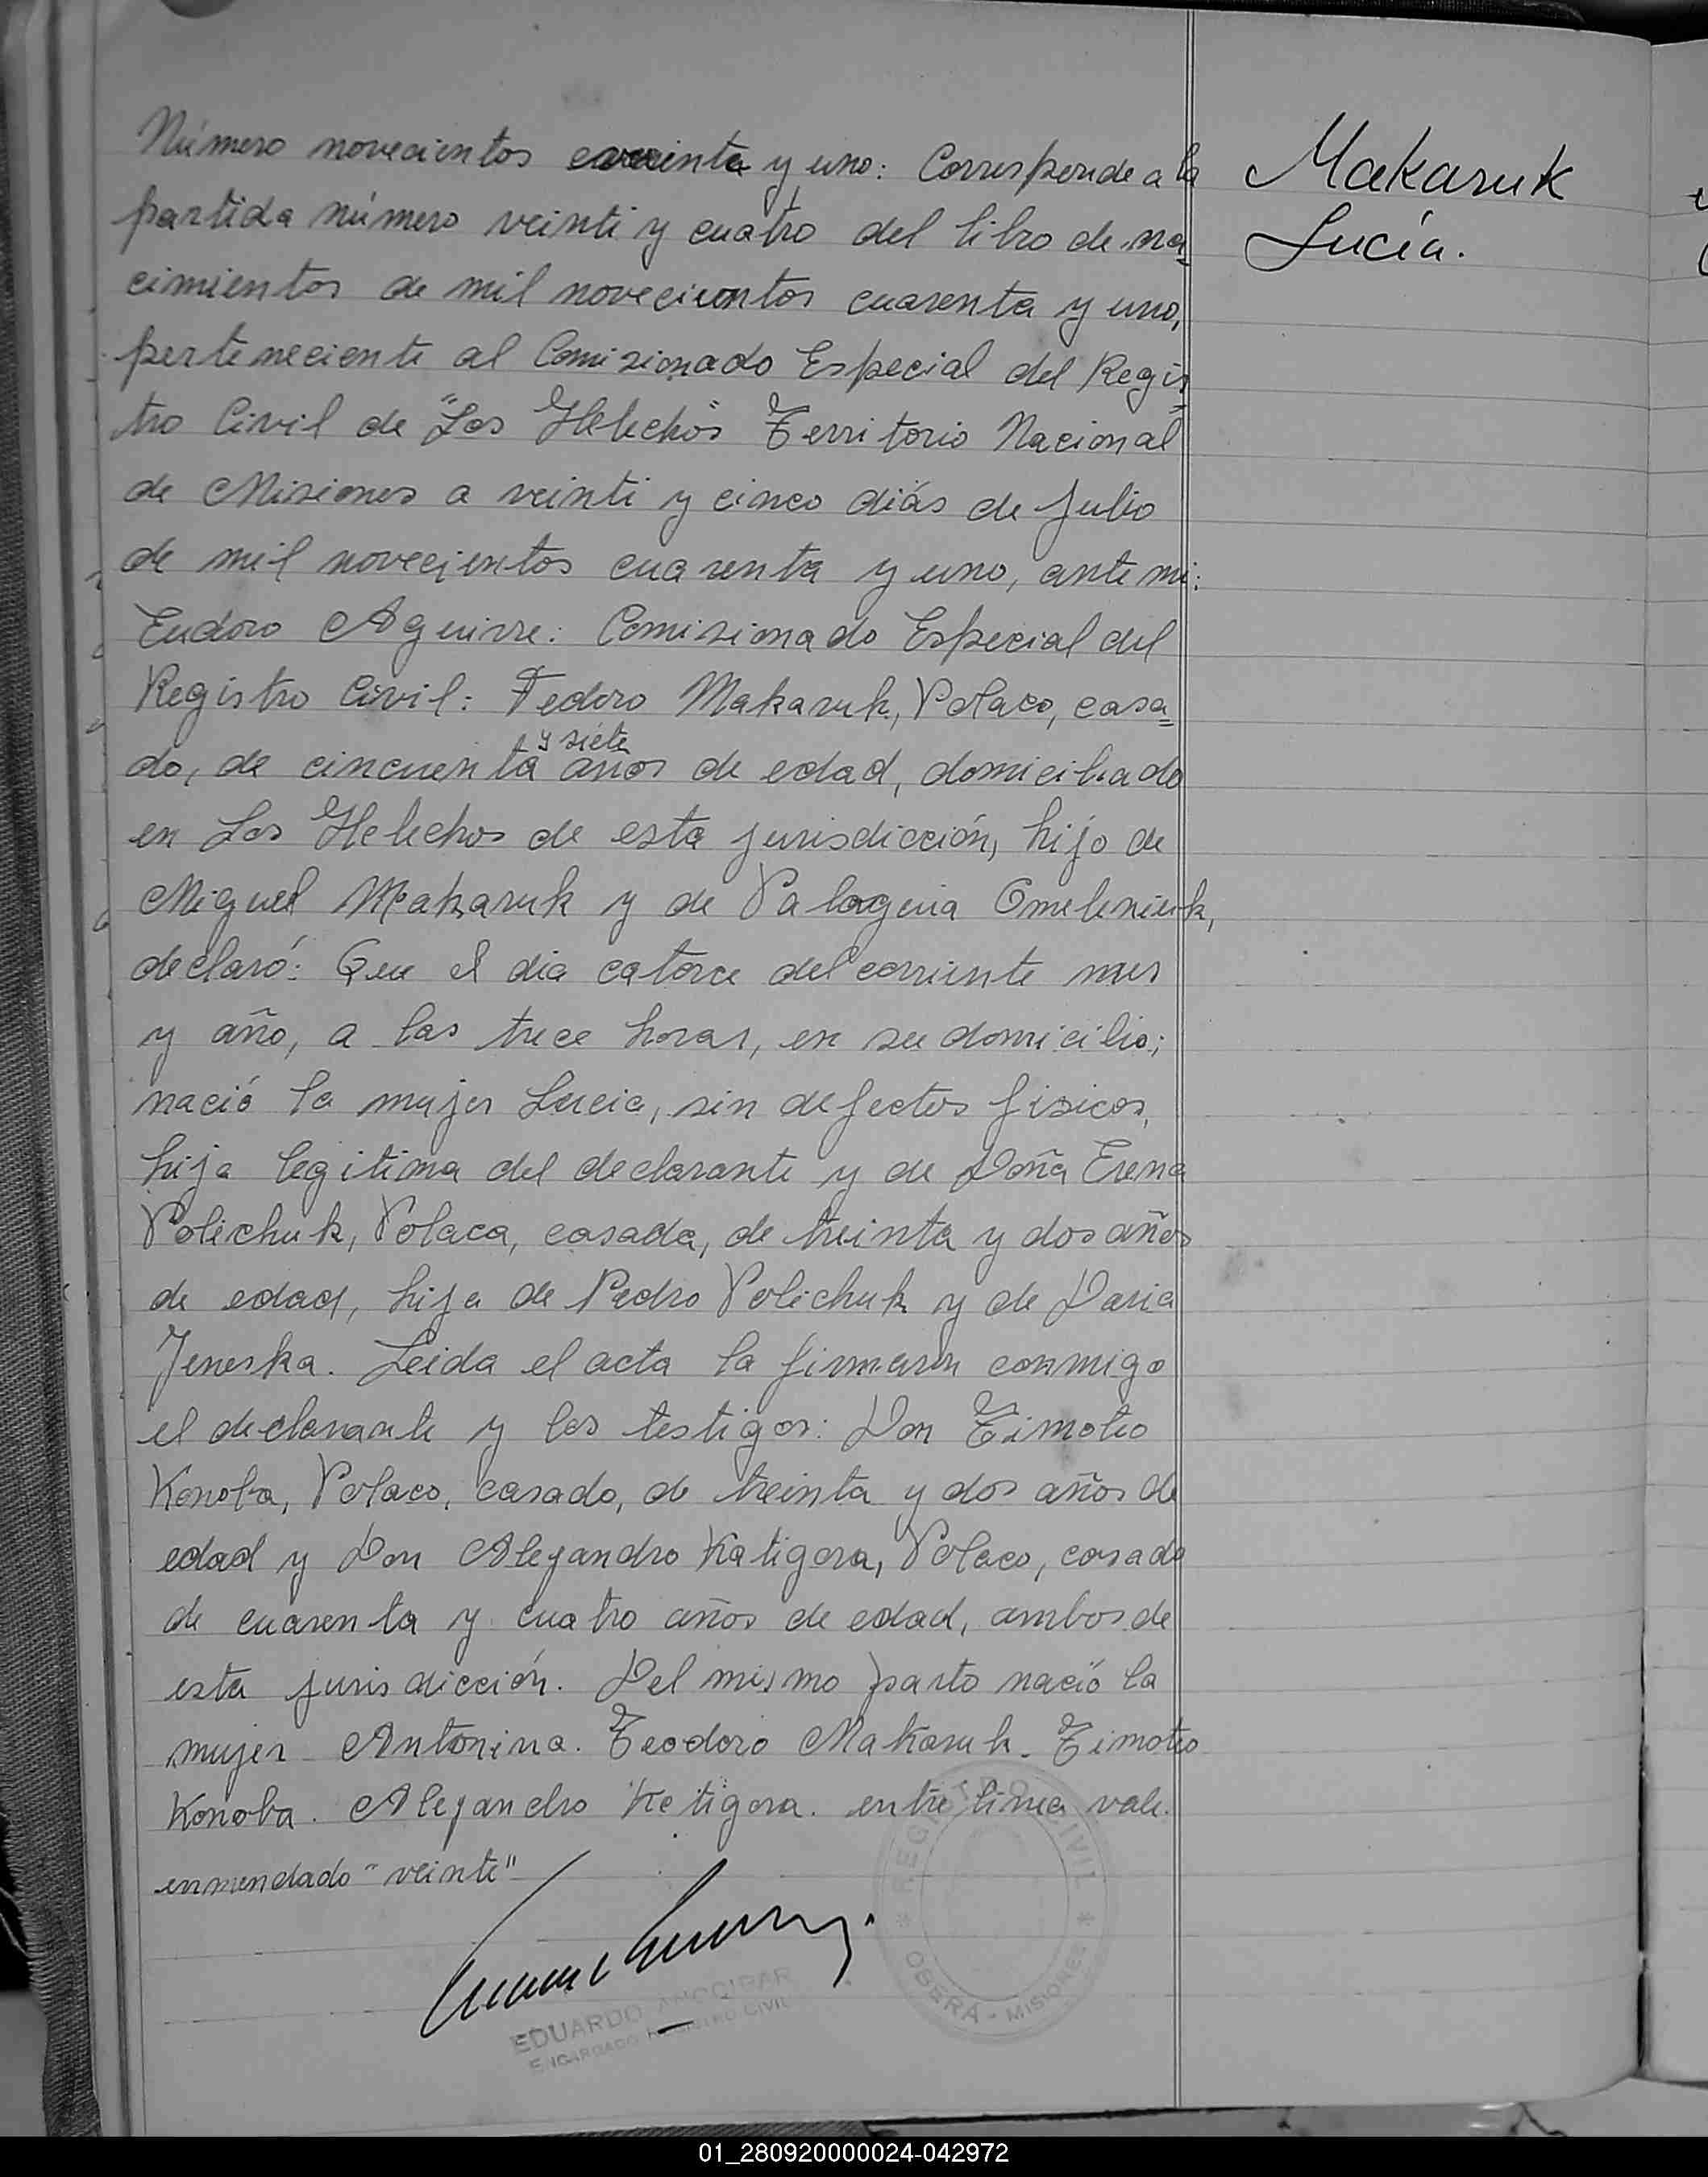 Número novecientos y uno: Corresponde a la
partida número veinti y cuatro del libro de na
cimientos de mil novecientos cuarenta y uno,
perteneciente al Comisionado Especial del Regis
tro Civil de "Los Helechos" Territorio Nacional
de Misiones a veinti y cinco diás de Julio
de mil novecientos cuarenta y uno, ante mi:
Eudoro Aguirre: Comisionado Especial del
Registro Civil: Fedoro Makaruk, Polaco, casa=
y siete
do, de cincuenta años de edad, domiciliado
en Los Helechos de esta jurisdicción, hijo de
Miguel Makaruk y de Palogeia Omeleniuk,
declaró: Que el dia catorce del corriente mes
y año, a las trece horas, en su domicilio;
nació la mujer Lucia, sin defectos fisicos,
hija legitima del declarante y de Doña Erena
Polichuk, Polaca, casada, de treinta y dos años
de edad, hija de Pedro Polichuk y de Daria
Jeneska. Leida el acta la firmaron conmigo
el declarante y los testigos: Don Timoteo
Konoba, Polaco, casado, de treinta y dos años de
edad y Don Alejandro Katigora, Polaco, casado
de cuarenta y cuatro años de edad, ambos de
esta jurisdicción. Del mismo parto nació la
mujer Antonina. Teodoro Makaruk. Timoteo
Konoba. Alejandro Ketigora. entre linea vale.
enmendado "veinte"
Makaruk
Lucía.
REGISTRO CIVIL
OBERA - MISIONES
EDUARDO ANOCIBAR
ENCARGADO REGISTRO CIVIL
01_280920000024-042972